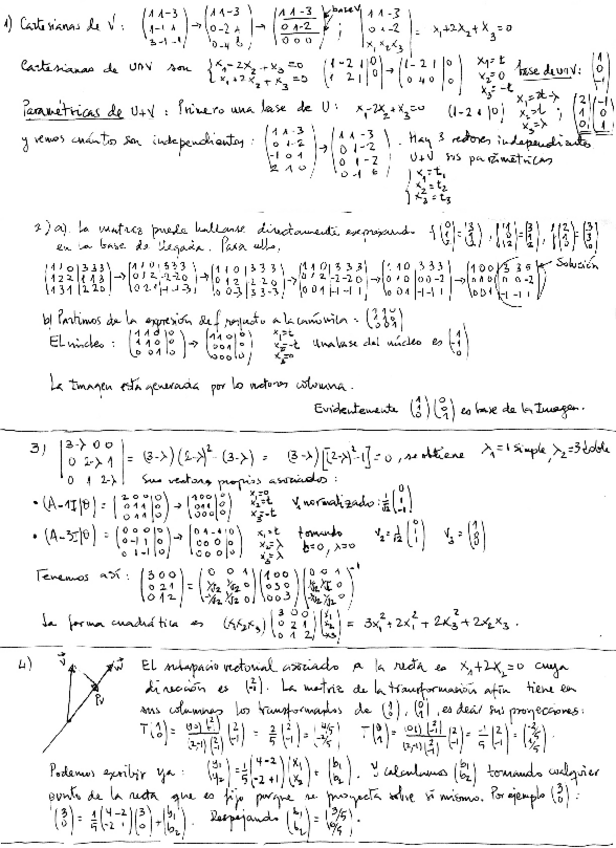 1) Cartesianas de V: (1 1 -3 / 1 -1 1 / 3 -1 -1) → (1 1 -3 / 0 -2 4 / 0 -4 8) → (1 1 -3 / 0 1 -2 / 0 0 0) base V ; |1 1 -3 / 0 1 -2 / x₁ x₂ x₃| = x₁+2x₂+x₃=0
Cartesianas de U∩V son {x₁-2x₂+x₃=0 / x₁+2x₂+x₃=0 (1 -2 1|0 / 1 2 1|0) → (1 -2 1|0 / 0 4 0|0) x₁=t x₂=0 x₃=-t base de U∩V: (1 / 0 / -1)
Paramétricas de U+V: Primero una base de U: x₁-2x₂+x₃=0 (1 -2 1|0) x₁=2t-λ x₂=t x₃=λ ; (2 / 1 / 0) (-1 / 0 / 1)
y vemos cuántos son independientes: (1 1 -3 / 0 1 -2 / -1 0 1 / 2 1 0) → (1 1 -3 / 0 1 -2 / 0 1 -2 / 0 -1 6). Hay 3 vectores independientes
U+V sus paramétricas
{x₁=t₁ x₂=t₂ x₃=t₃
2) a). La matriz puede hallarse directamente expresando
en la base de llegada. Para ello,
Solución
b) Partimos de la expresión de f respecto a la canónica: (1 1 0 / 1 1 0 / 0 0 1)
El núcleo: (1 1 0|0 / 1 1 0|0 / 0 0 1|0) → (1 1 0|0 / 0 0 1|0 / 0 0 0|0) x₁=t x₂=-t x₃=0 Una base del núcleo es (1 / -1 / 0)
La Imagen está generada por los vectores columna.
Evidentemente (1 / 1 / 0) (0 / 0 / 1) es base de la Imagen.
3) |3-λ 0 0 / 0 2-λ 1 / 0 1 2-λ| = (3-λ)(2-λ)² - (3-λ) = (3-λ)[(2-λ)²-1]=0, se obtiene λ₁=1 simple, λ₂=3 doble
Sus vectores propios asociados:
• (A-1I|0) = (2 0 0|0 / 0 1 1|0 / 0 1 1|0) → (1 0 0|0 / 0 1 1|0 / 0 0 0|0) x₁=0 x₂=t x₃=-t V₁ normalizado: 1/√2 (0 / 1 / -1)
• (A-3I|0) = (0 0 0|0 / 0 -1 1|0 / 0 1 -1|0) → (0 1 -1|0 / 0 0 0|0 / 0 0 0|0) x₁=t x₂=λ x₃=λ tomando t=0, λ=0 V₂=1/√2 (0 / 1 / 1) V₃=(1 / 0 / 0)
Tenemos así: (3 0 0 / 0 2 1 / 0 1 2) = (0 0 1 / 1/√2 1/√2 0 / -1/√2 1/√2 0) (1 0 0 / 0 3 0 / 0 0 3) (0 0 1 / 1/√2 1/√2 0 / -1/√2 1/√2 0)⁻¹
La forma cuadrática es (x₁x₂x₃) (3 0 0 / 0 2 1 / 0 1 2) (x₁ / x₂ / x₃) = 3x₁²+2x₂²+2x₃²+2x₂x₃.
4) V W PV El subespacio vectorial asociado a la recta es x₁+2x₂=0 cuya
dirección es (2 / -1). La matriz de la transformación afín tiene en
sus columnas los transformados de (1 / 0), (0 / 1), es decir sus proyecciones:
T(1 / 0) = (1 0)(2 / -1) / (2 -1)(2 / -1) (2 / -1) = 2/5 (2 / -1) = (4/5 / -2/5) T(0 / 1) = (0 1)(2 / -1) / (2 -1)(2 / -1) (2 / -1) = -1/5 (2 / -1) = (-2/5 / 1/5).
Podemos escribir ya: (y₁ / y₂) = 1/5 (4 -2 / -2 +1) (x₁ / x₂) = (b₁ / b₂). Y calculamos (b₁ / b₂) tomando cualquier
punto de la recta que es fijo porque se proyecta sobre sí mismo. Por ejemplo (3 / 0):
(3 / 0) = 1/5 (4 -2 / -2 1) (3 / 0) + (b₁ / b₂). Despejando (b₁ / b₂) = (3/5 / 6/5).